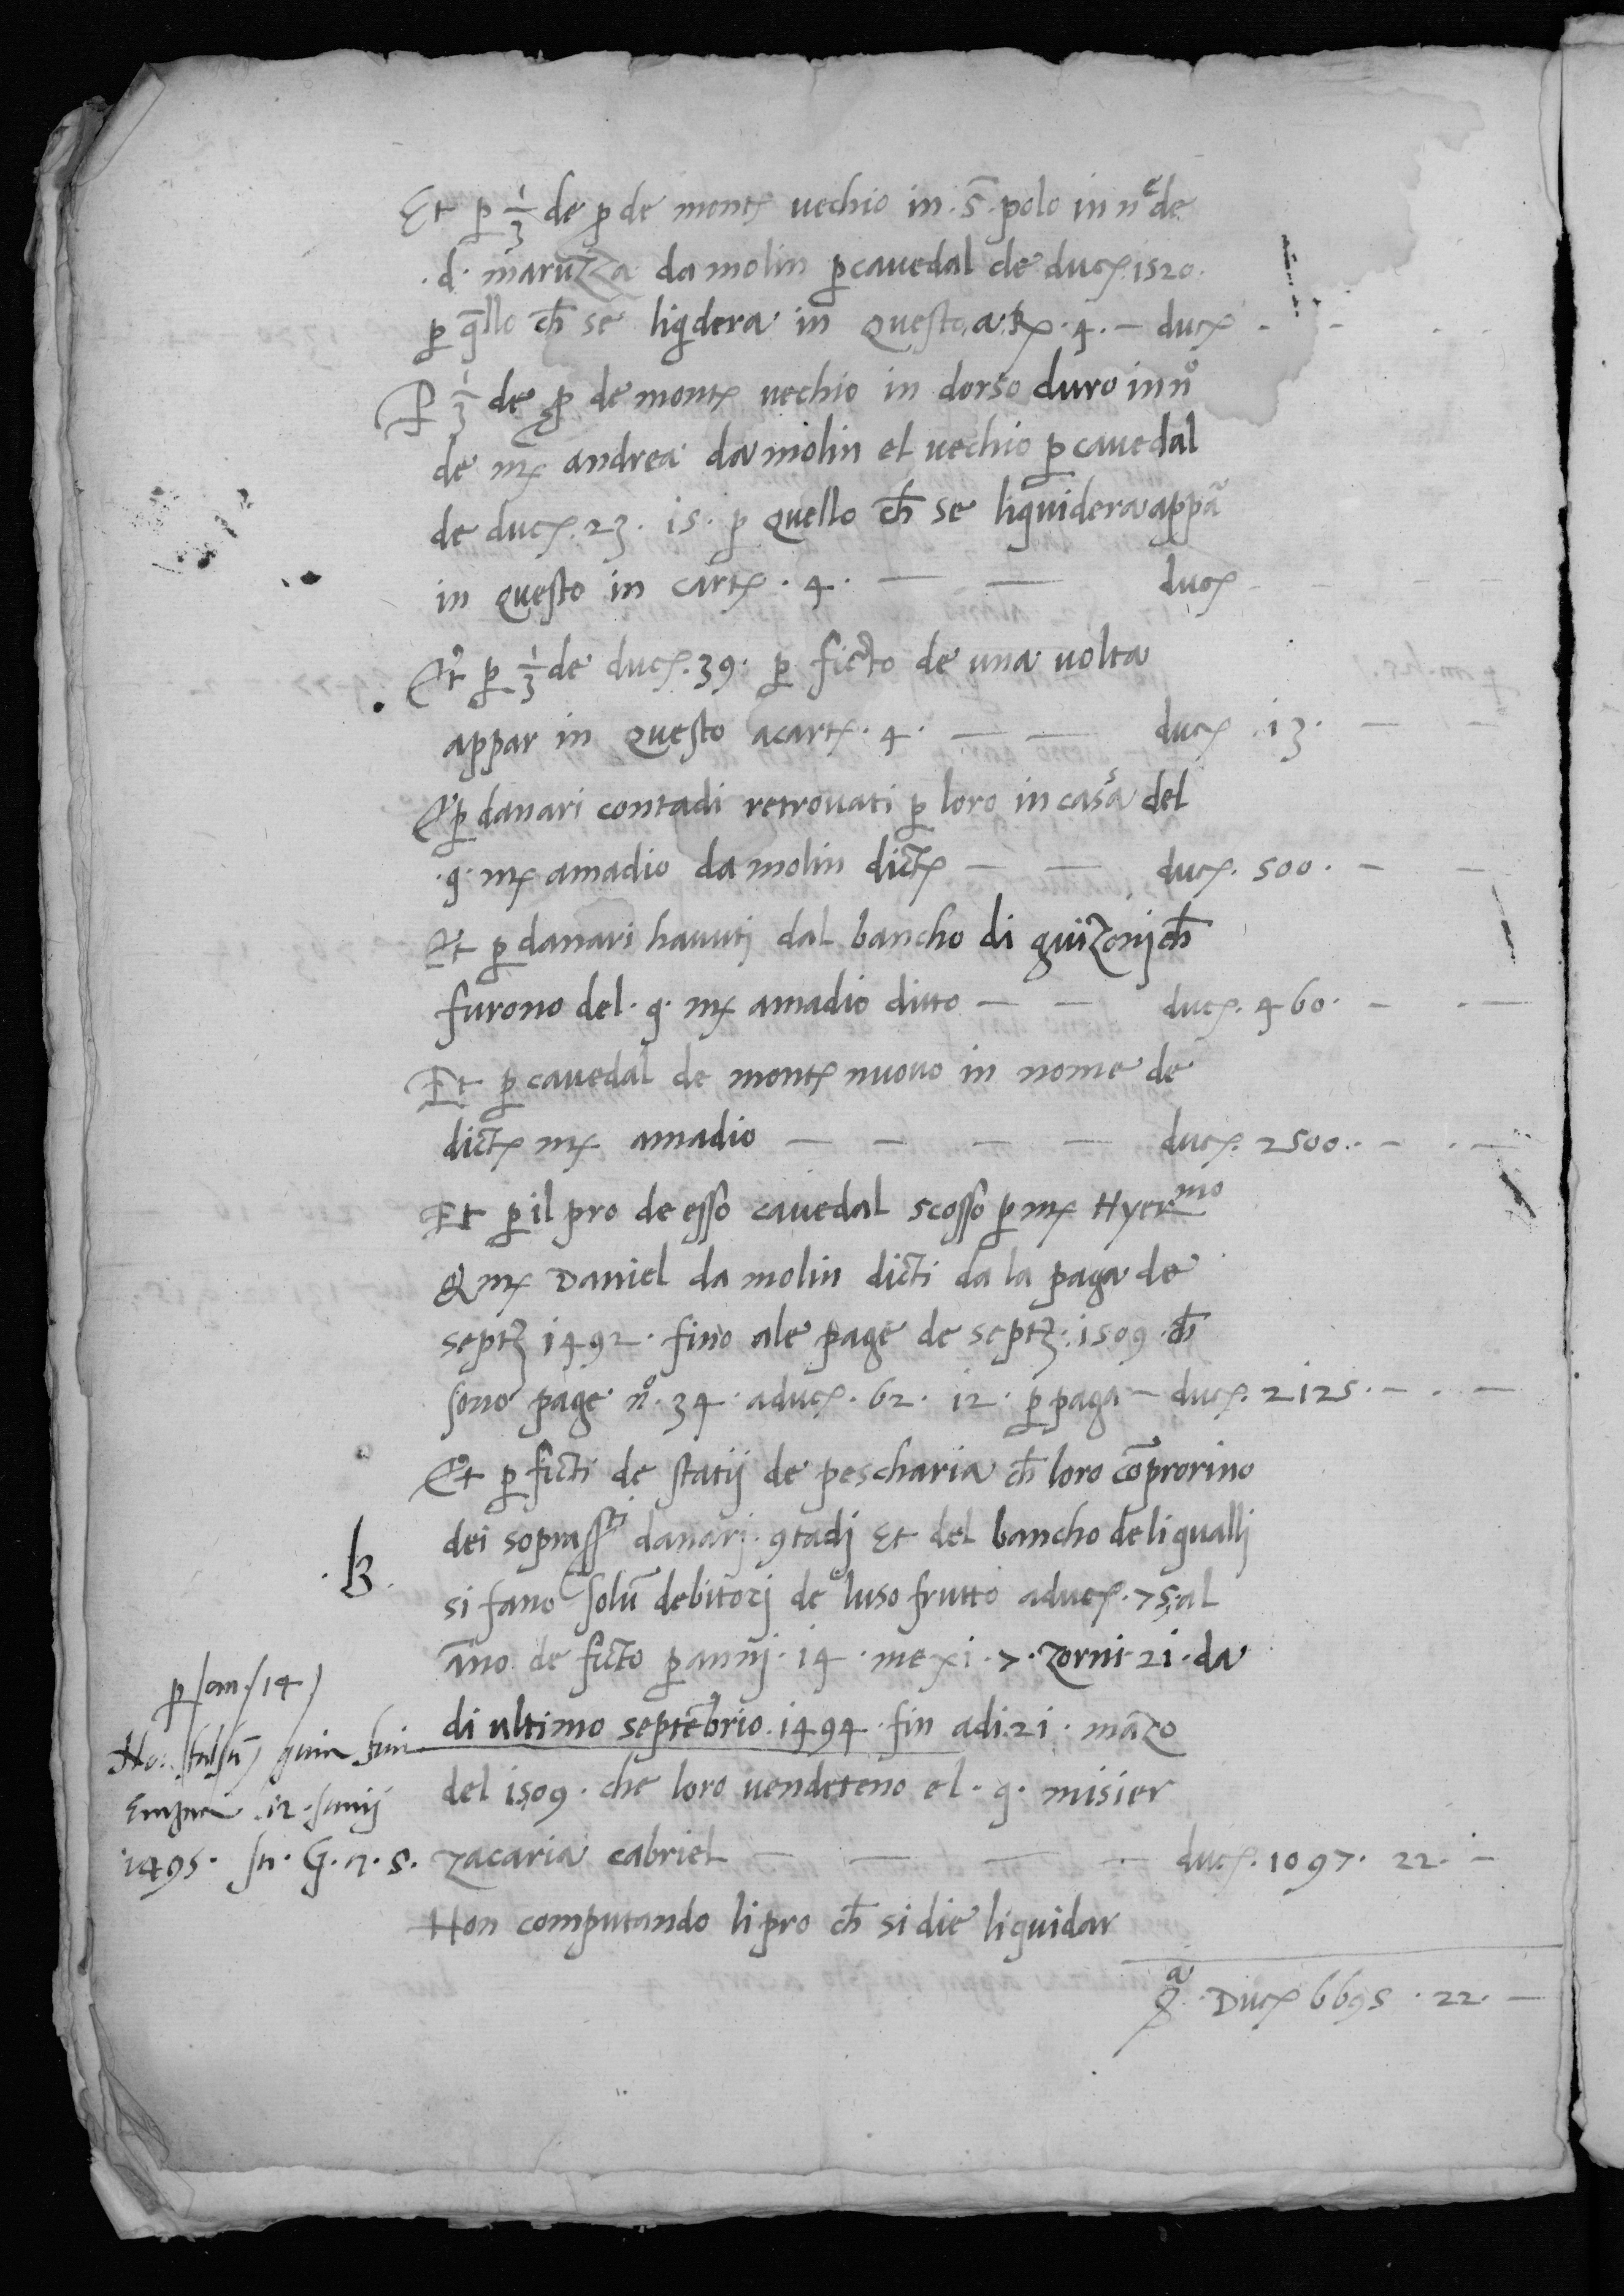 Et p 1/3 de p de mont vechio in . S . polo in nᵉ de
. d . maruzza da molin p cavedal de duc . 1520 .
p q̄llo ch̄ se liq̄dera in questo a k . 4 . — duc . —
P 1/3 de p de mont vechio in dorso duro in nº
de m andrea da molin el vechio p cavedal
de duc . 23 . 15 . p quello ch̄ se liquidera appā
in questo in cart . 4 . — — duc
Et p 1/3 de duc . 39 . p ficto de una volta
appar in questo a cart . 4 . — — duc . 13 . — —
Et p danari contadi retrovati p loro in casa del
. q . m amadio da molin dict — — duc . 500 . — —
Et p danari havuti dal bancho di guizonj ch̄
furono del . q . m amadio ditto — — duc . 460 . — . —
Et p cavedal de mont nuovo in nome de
dict m amadio — — — — duc . 2500 . . — . —
Et p il pro de esso cavedal scosso p m Hyerᵐᵒ
& m Daniel da molin dicti da la paga de
sept 1492 . fino ale page de sept . 1509 . ch̄
sono page nº . 34 . a duc . 62 . 12 . p paga — duc . 2125 . — . —
Et p ficti de statij de pescharia ch̄ loro cōprorino
dei soprassᵗⁱ danarj . 9tadj Et del bancho de li qualli
. B .
si fano solū debitorj de luso frutto a duc . 75 . al
āno de ficto p annj . 14 . mexi . 7 . zorni . 21 . da
di ultimo septēbrio . 1494 . fin adi . 21 . marzo
del 1509 . che loro vendeteno el . q . misier
zacaria cabriel — — — — duc . 1097 . 22 . —
12 . Junij
1495 . G . n . S .
Non computando li pro ch̄ si die liquidar
Duc 6695 . 22 . —